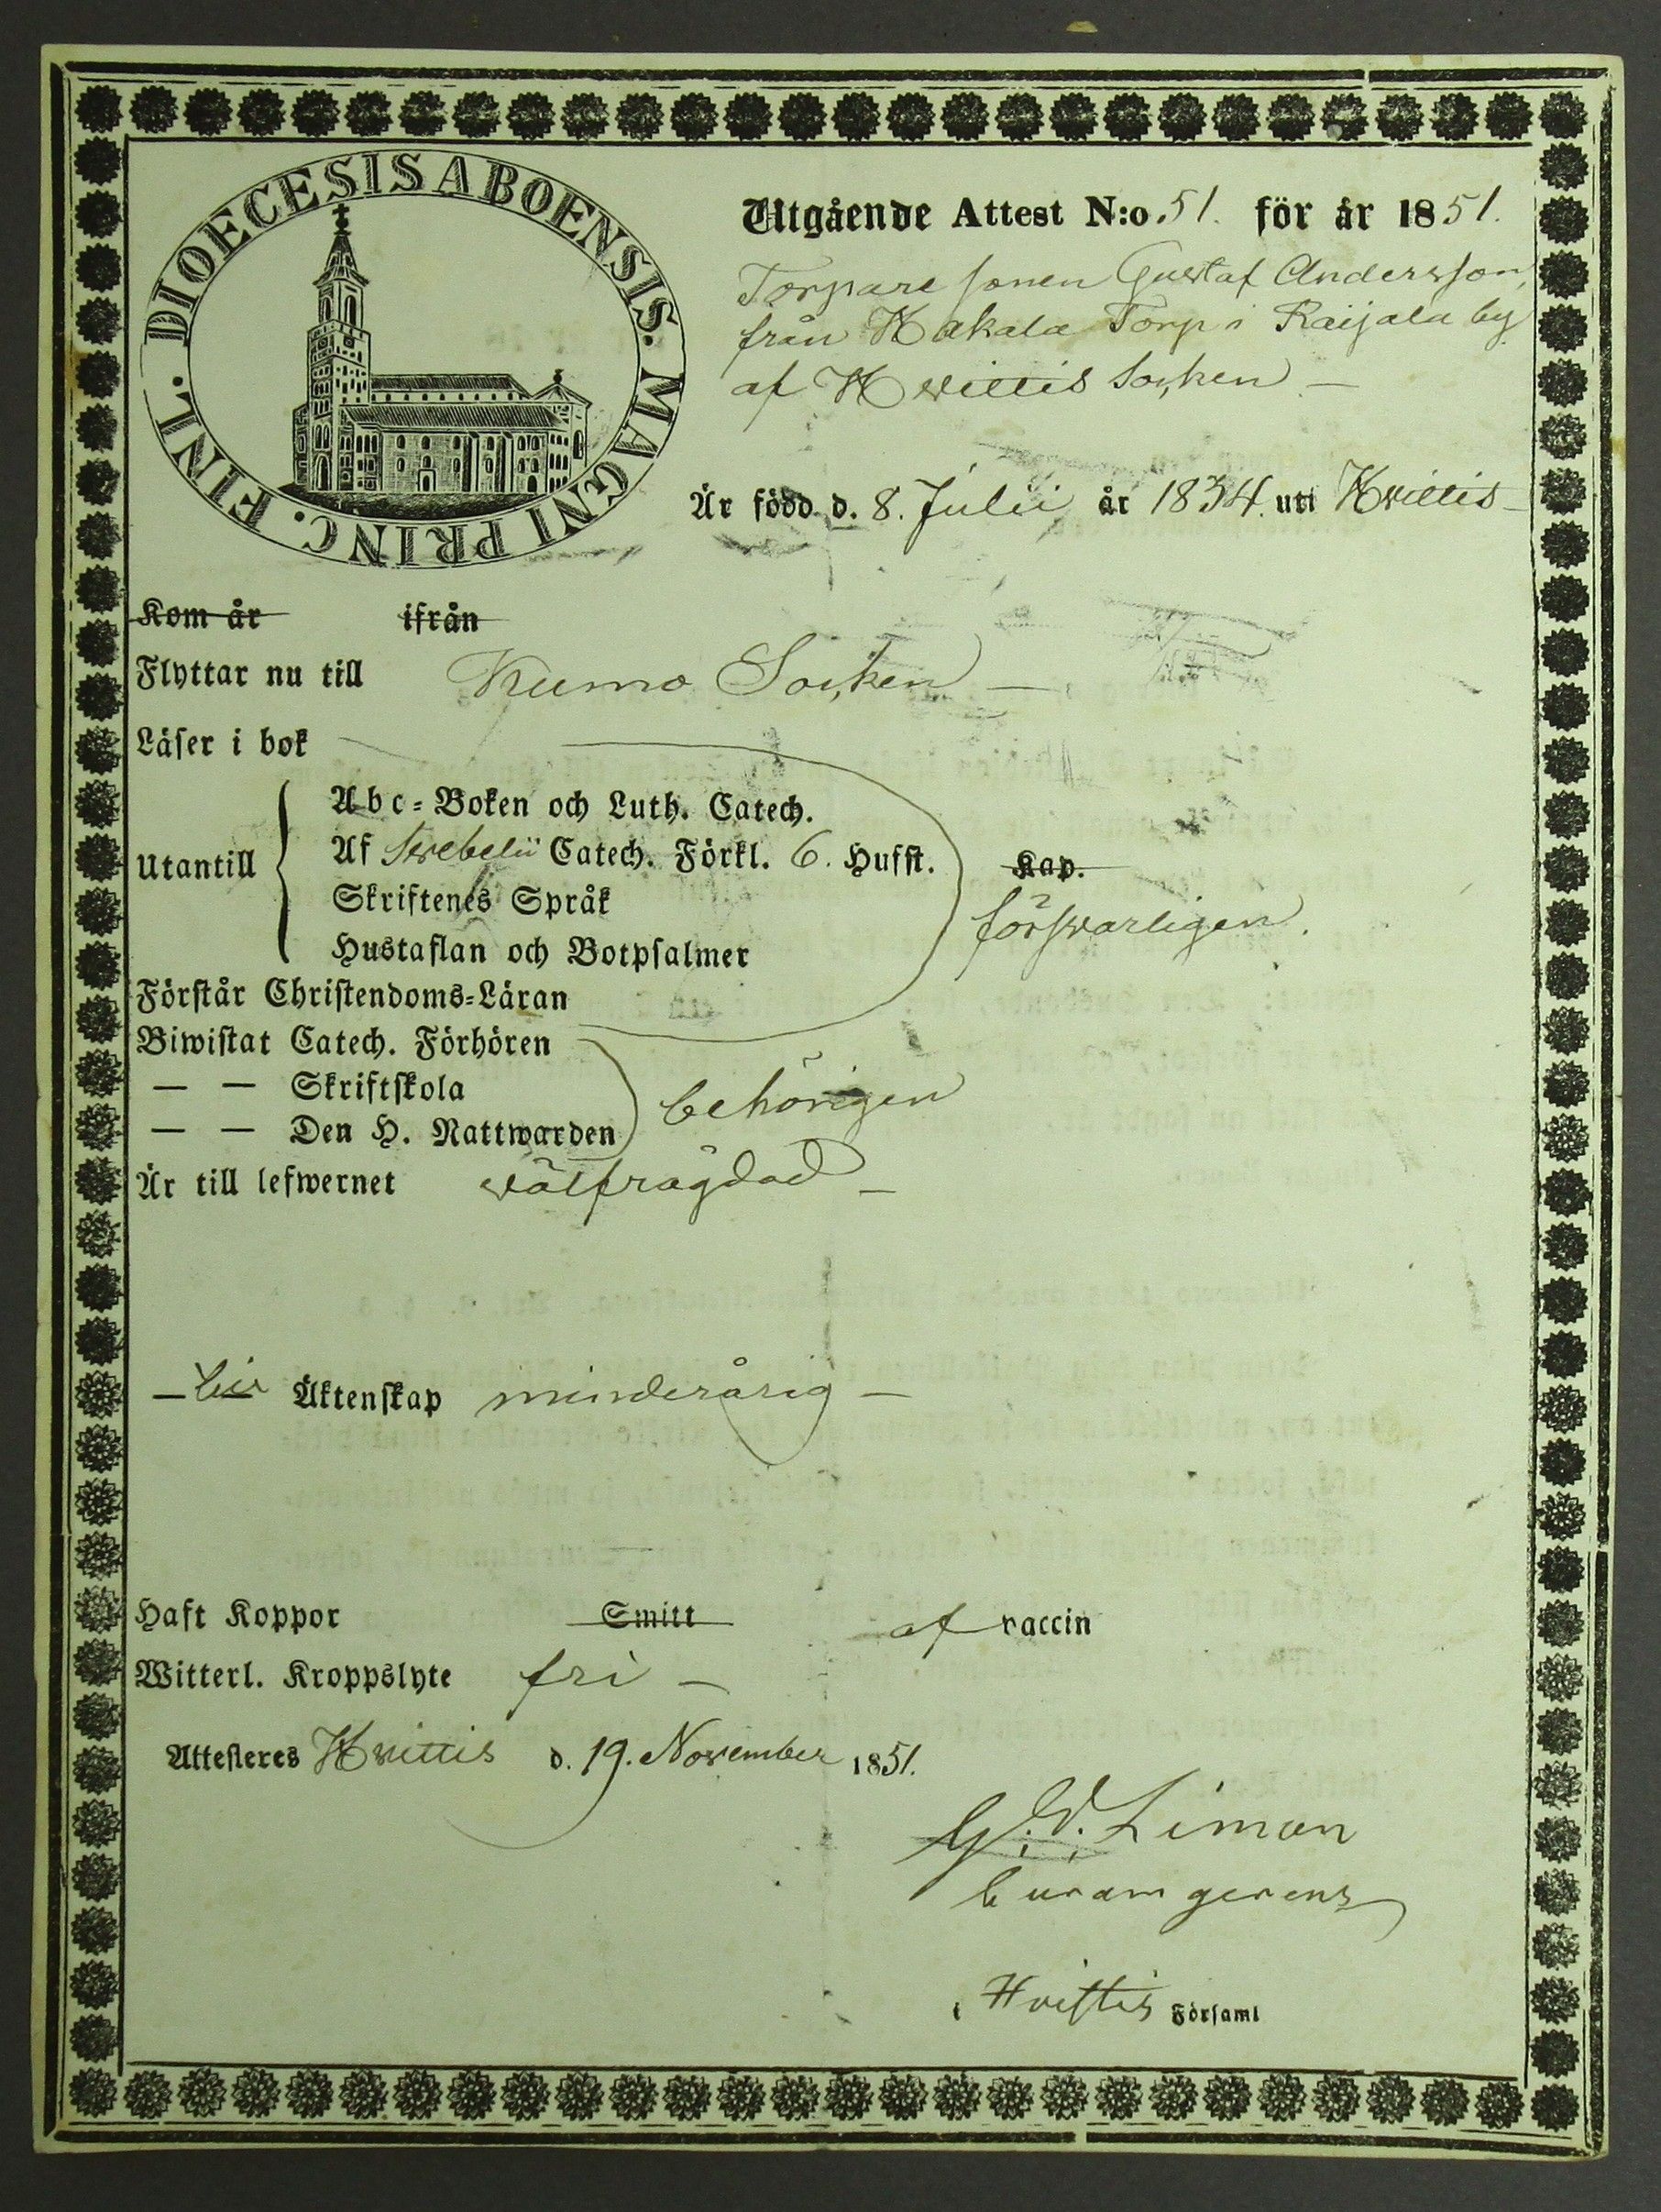 DIOECESIS ABOENSIS. MAGNI PRINC. FINL.
Utgående Attest N:o 51. för år 1851.
Torpare sonen Gustaf Andersson,
från Hakala Torp i Raijala by
af Hvittis Socken —
Är född d. 8. Julii år 1834. uti Hvittis —
Kom år ifrån
Flyttar nu till Kumo Socken —
Läser i bok
Abc-Boken och Luth. Catech.
Utantill Af Svebelii Catech. Förkl. 6. Hufst. Kap.
Skriftenes Språk försvarligen.
Hustaflan och Botpsalmer
Förstår Christendoms-Läran
Biwistat Catech. Förhören
— — Skriftskola behörigen
— — Den H. Nattwarden
Är till lefwernet välfrägdad —
— Äktenskap minderårig —
Haft Koppor Smitt af vaccin
Witterl. Kroppslyte fri —
Attesteres Hvittis d. 19. November 1851.
G. W. Liman
Curam gerens
i Hvittis Församl